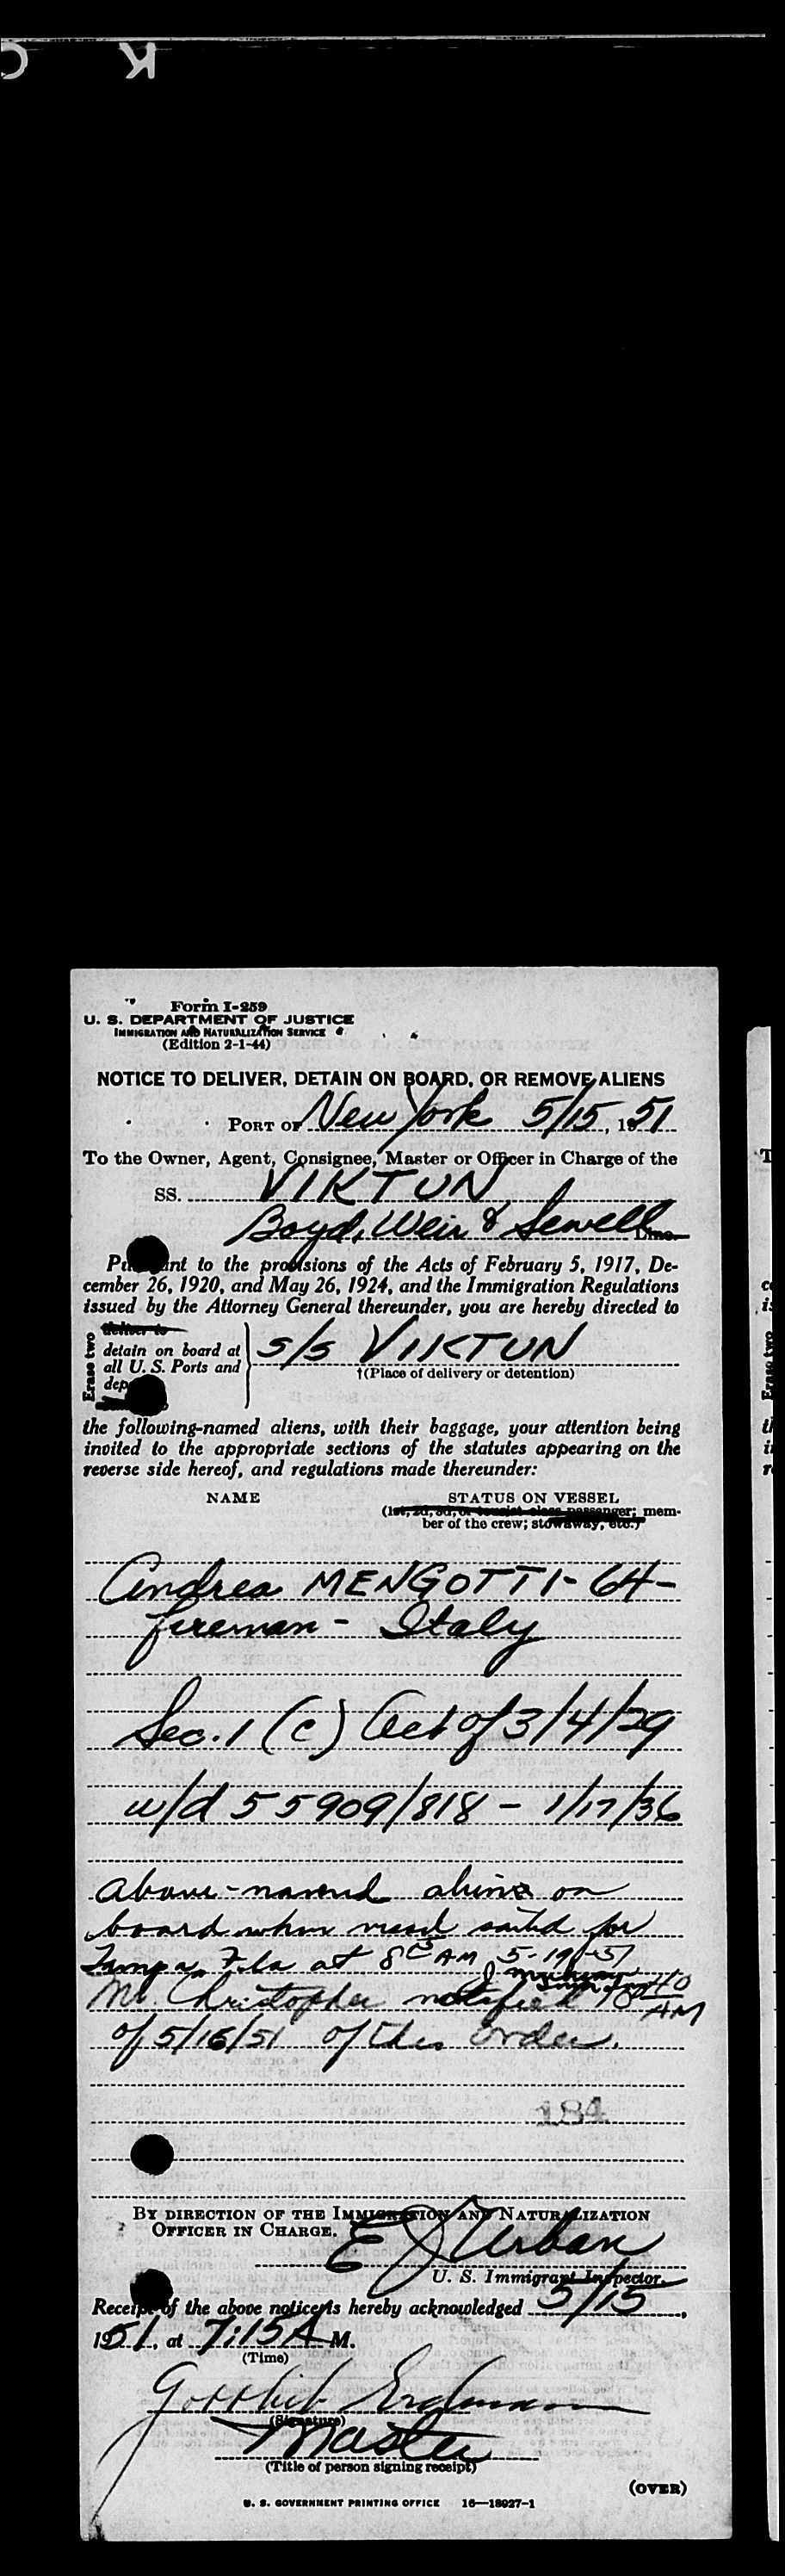 K
Form I-259
U. S. DEPARTMENT OF JUSTICE
IMMIGRATION AND NATURALIZATION SERVICE
(Edition 2-1-44)
NOTICE TO DELIVER, DETAIN ON BOARD, OR REMOVE ALIENS
PORT OF New York 5/15, 1951
To the Owner, Agent, Consignee, Master or Officer in Charge of the
SS. VIKTUN
Boyd, Weir & Sewell Line
Pursuant to the provisions of the Acts of February 5, 1917, De-
cember 26, 1920, and May 26, 1924, and the Immigration Regulations
issued by the Attorney General thereunder, you are hereby directed to
Erase two
deliver to
detain on board at
all U. S. Ports and
dep
S/S VIKTUN
†(Place of delivery or detention)
the following-named aliens, with their baggage, your attention being
invited to the appropriate sections of the statutes appearing on the
reverse side hereof, and regulations made thereunder:
NAME STATUS ON VESSEL
(1st, 2d, 3d, or tourist class passenger; mem-
ber of the crew; stowaway, etc.)
Andrea MENGOTTI - 64 -
fireman - Italy
Sec. 1 (c) Act of 3/4/29
w/d 55909/818 - 1/17/36
Above-named alien on
board when vessel sailed for
Tampa, Fla at 8 AM 5-19-51
Mr. Christopher notified 10 40 AM
of 5/16/51 of this order.
184
BY DIRECTION OF THE IMMIGRATION AND NATURALIZATION
OFFICER IN CHARGE.
E J Urban
U. S. Immigrant Inspector.
Receipt of the above notice is hereby acknowledged 5/15,
1951, at 7:15 A M.
(Time)
Gottlieb Erdmann
(Signature)
Master
(Title of person signing receipt)
(OVER)
U. S. GOVERNMENT PRINTING OFFICE 16—18027-1